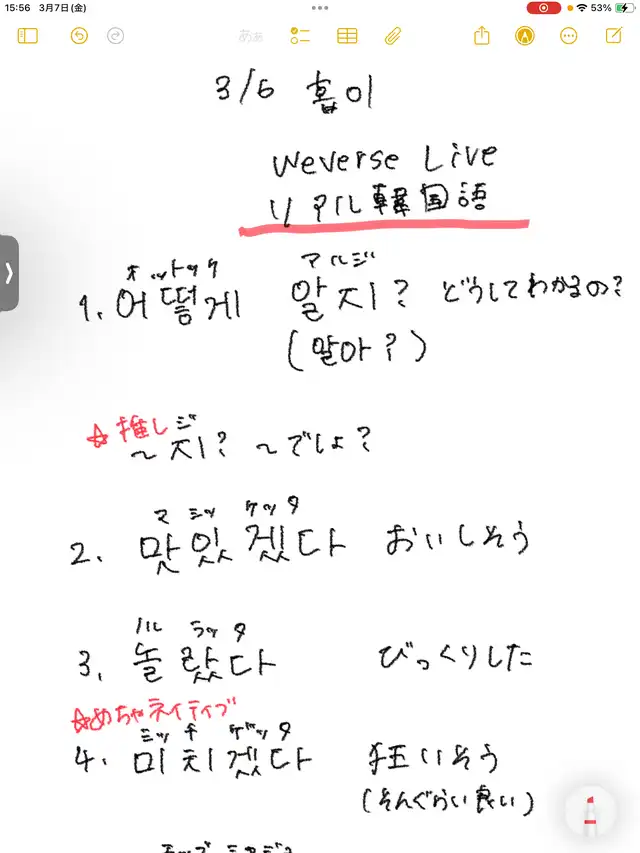 15:56 3月7日(金) 53%
あぁ
3/6 홉이
Weverse Live
リアル韓国語
オットッケ マルジ
1. 어떻게 알지? どうしてわかるの?
(말아?)
☆推し ジ
~지? ~でしょ?
マ シッ ケッ タ
2. 맛있겠다 おいしそう
ノル ラッ タ
3. 놀랐다 びっくりした
☆めちゃネイティブ
ミッ チ ゲッ タ
4. 미치겠다 狂いそう
(そんぐらい良い)